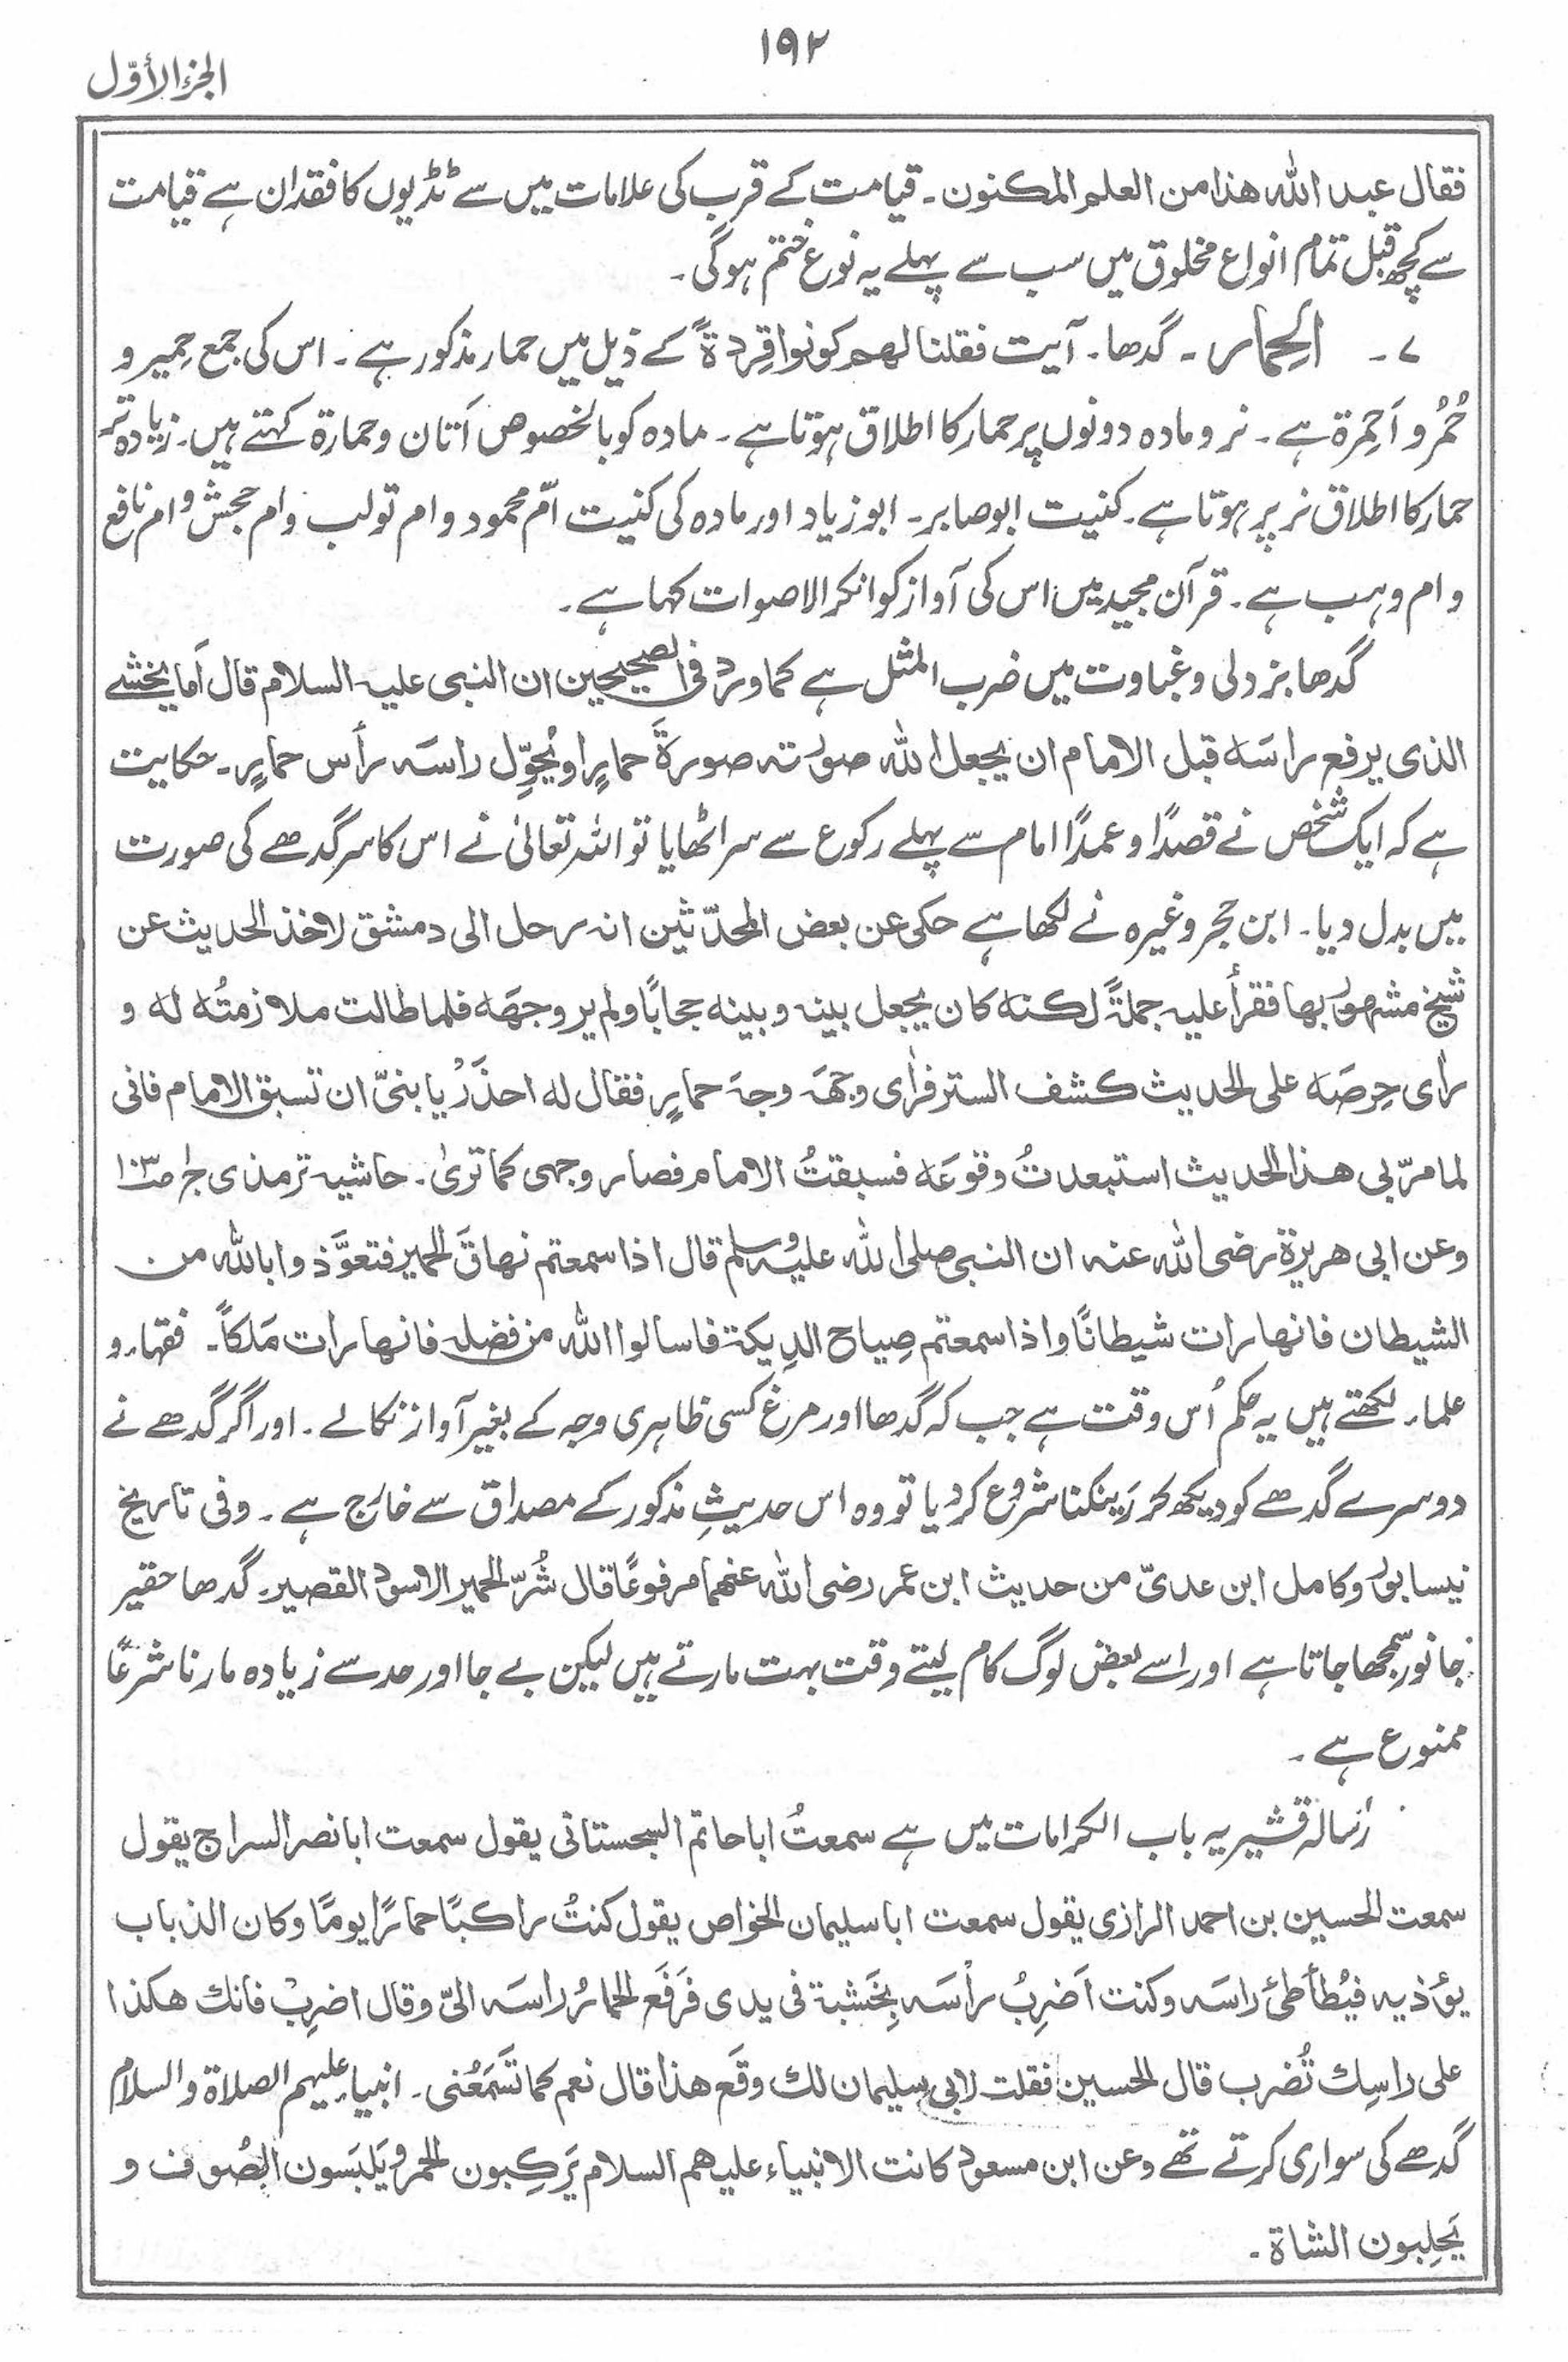 ۱۹۲
الجزء الأوّل
فقال عبد اللّٰه هذا من العلم المكنون۔ قیامت کے قرب کی علامات میں سے ٹڈیوں کا فقدان ہے قیامت
سے کچھ قبل تمام انواع مخلوق میں سب سے پہلے یہ نوع ختم ہوگی۔
۷۔ الحِمار۔ گدھا۔ آیت فقلنا لهم كونوا قِردةً کے ذیل میں حمار مذکور ہے۔ اس کی جمع حِمیر و
حُمُر و اَحمِرة ہے۔ نر و مادہ دونوں پر حمار کا اطلاق ہوتا ہے۔ مادہ کو بالخصوص اَتان و حمارة کہتے ہیں۔ زیادہ تر
حمار کا اطلاق نر پر ہوتا ہے۔ کنیت ابو صابر۔ ابو زیاد اور مادہ کی کنیت امّ محمود و ام تولب و ام جحش و ام نافع
و ام وہب ہے۔ قرآن مجید میں اس کی آواز کو انکر الاصوات کہا ہے۔
گدھا بزدلی و غباوت میں ضرب المثل ہے كما ورد فی الصحیحین ان النبی علیه السلام قال اَما یخشے
الذی یرفع راسَه قبل الامام ان یجعل اللّٰه صورته صورةَ حمارٍ او یُحوِّل راسَه رأس حمارٍ۔ حکایت
ہے کہ ایک شخص نے قصدًا و عمدًا امام سے پہلے رکوع سے سر اٹھایا تو اللہ تعالیٰ نے اس کا سر گدھے کی صورت
میں بدل دیا۔ ابن حجر وغیرہ نے لکھا ہے حکی عن بعض المحدّثین انه رحل الی دمشق لاخذ الحدیث عن
شیخ مشهور بها فقرأ علیه جملةً لكنه كان یجعل بینه و بینه حجابًا ولم یر وجهَه فلما طالت ملازمتُه له و
رأی حِرصَه علی الحدیث كشف الستر فرأی وجهَه وجهَ حمارٍ فقال له احذَرْ یا بنیّ ان تسبق الامام فانی
لما مرّ بی هذا الحدیث استبعدتُ وقوعَه فسبقتُ الامام فصار وجهی كما تریٰ۔ حاشیه ترمذی ج۱ ص۱۰۳
وعن ابی هریرة رضی اللّٰه عنه ان النبی صلی اللّٰه علیه وسلم قال اذا سمعتم نهاقَ الحمیر فتعوَّذوا باللّٰه من
الشیطان فانها رات شیطانًا واذا سمعتم صِیاح الدِیكة فاسالوا اللّٰه من فضله فانها رات مَلكاً۔ فقہاء و
علماء لکھتے ہیں یہ حکم اُس وقت ہے جب کہ گدھا اور مرغ کسی ظاہری وجہ کے بغیر آواز نکالے۔ اور اگر گدھے نے
دوسرے گدھے کو دیکھ کر رینکنا شروع کر دیا تو وہ اس حدیثِ مذکور کے مصداق سے خارج ہے۔ وفی تاریخ
نیسابور وکامل ابن عدیّ من حدیث ابن عمر رضی اللّٰه عنهما مرفوعًا قال شُرّ الحمیر الاسود القصیر۔ گدھا حقیر
جانور سمجھا جاتا ہے اور اسے بعض لوگ کام لیتے وقت بہت مارتے ہیں لیکن بے جا اور حد سے زیادہ مارنا شرعًا
ممنوع ہے۔
رسالہ قشیریہ باب الکرامات میں ہے سمعتُ ابا حاتم السجستانی یقول سمعت ابا نصر السراج یقول
سمعت الحسین بن احمد الرازی یقول سمعت ابا سلیمان الخواص یقول كنتُ راكبًا حمارًا یومًا وكان الذباب
یؤذیه فیُطأطئ راسَه وكنت اَضرِبُ رأسَه بِخَشبة فی یدی فَرَفَع الحمارُ راسَه الیّ وقال اضرِبْ فانك هكذا
علی راسِك تُضرب قال الحسین فقلت لابی سلیمان لك وقَع هذا قال نعم كما تَسْمَعُنی۔ انبیاء علیہم الصلاة والسلام
گدھے کی سواری کرتے تھے وعن ابن مسعود كانت الانبیاء علیهم السلام یَركبون الحمر و یَلبَسون الصُوف و
یَحلِبون الشاة۔